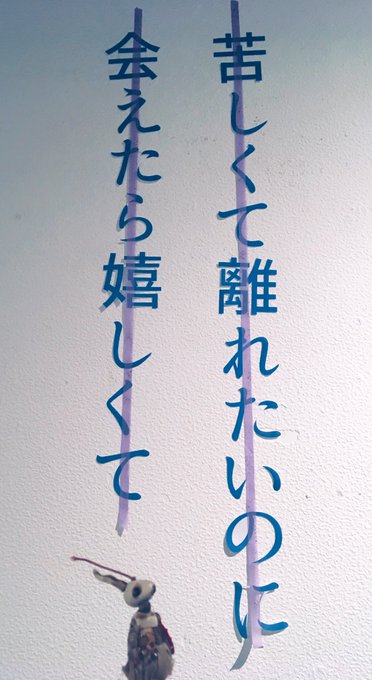 苦しくて離れたいのに
会えたら嬉しくて